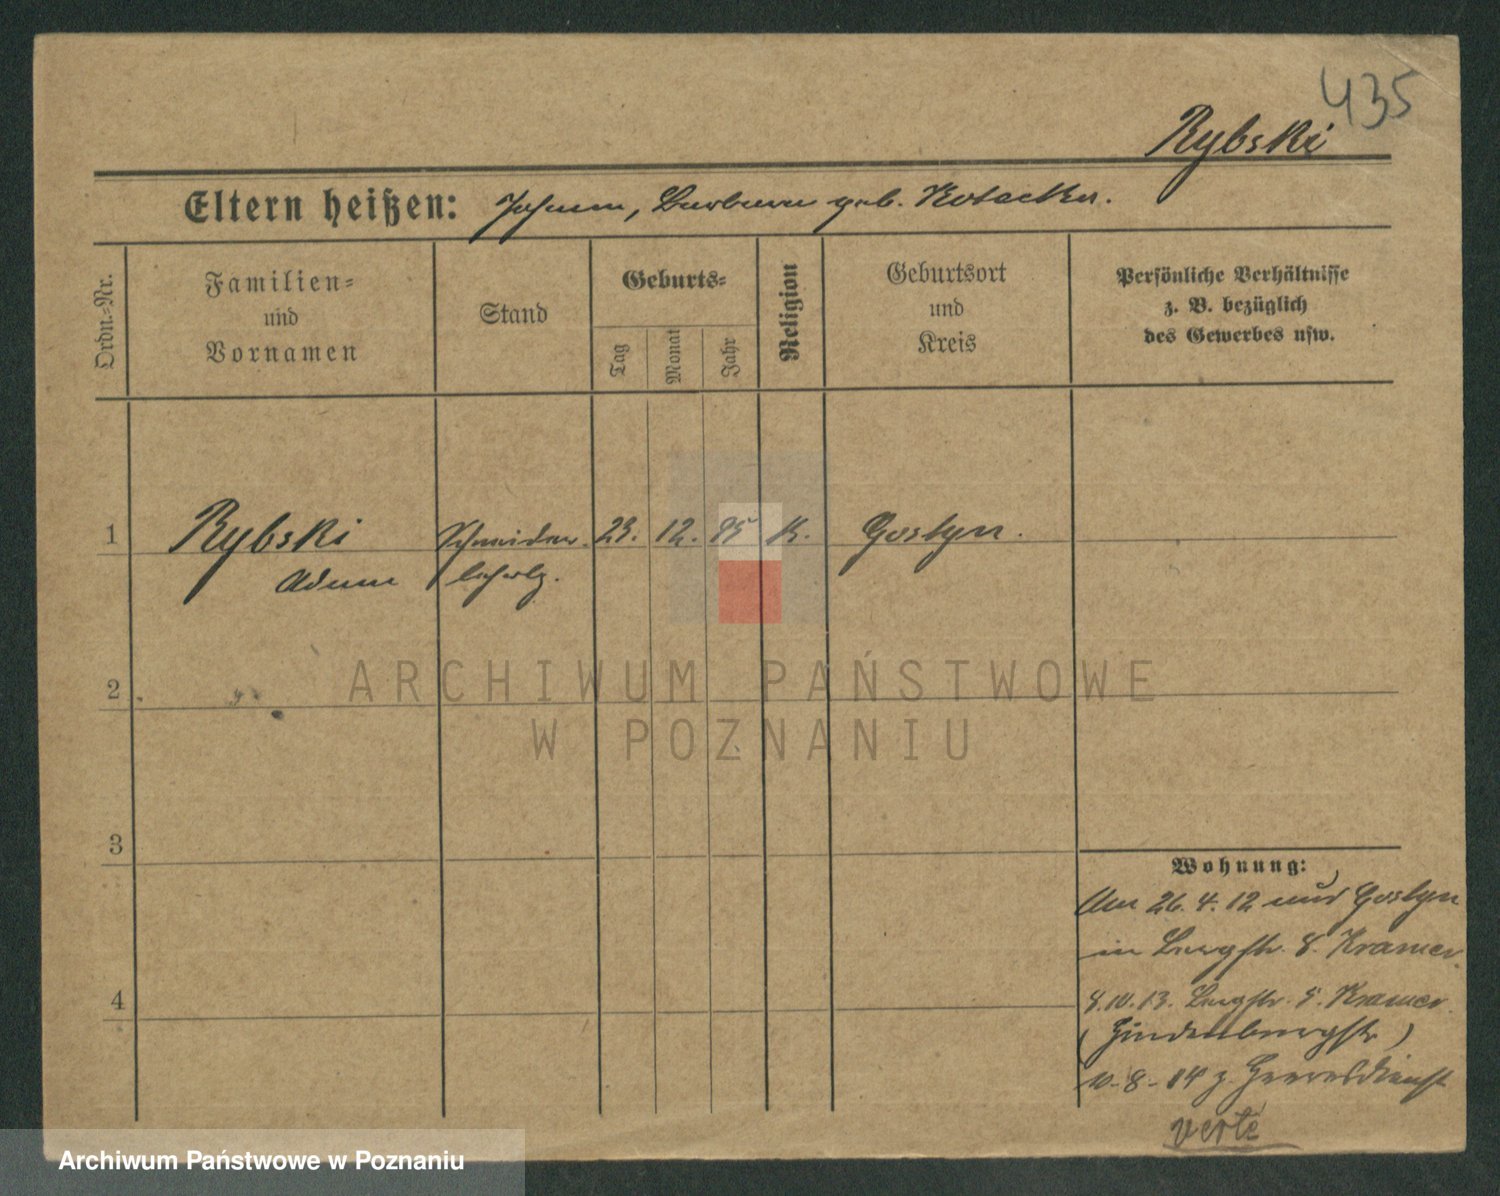 435
Rybski
Eltern heißen: Johann, Barbara geb. Kotecka.
Ordn.-Nr.
Familien-
und
Vornamen
Stand
Geburts-
Tag
Monat
Jahr
Religion
Geburtsort
und
Kreis
Persönliche Verhältnisse
z. B. bezüglich
des Gewerbes usw.
1 Rybski Schneider 23. 12. 95 K. Gostyn.
Adam lehrlg.
2
3
4
ARCHIWUM PAŃSTWOWE
W POZNANIU
Wohnung:
Am 26. 4. 12 aus Gostyn
in Bergstr. 8. Kramer.
8.10.13. Bergstr. 5. Kramer.
(Hindenburgstr)
10-8-14 z. Heeresdienst
verte
Archiwum Państwowe w Poznaniu